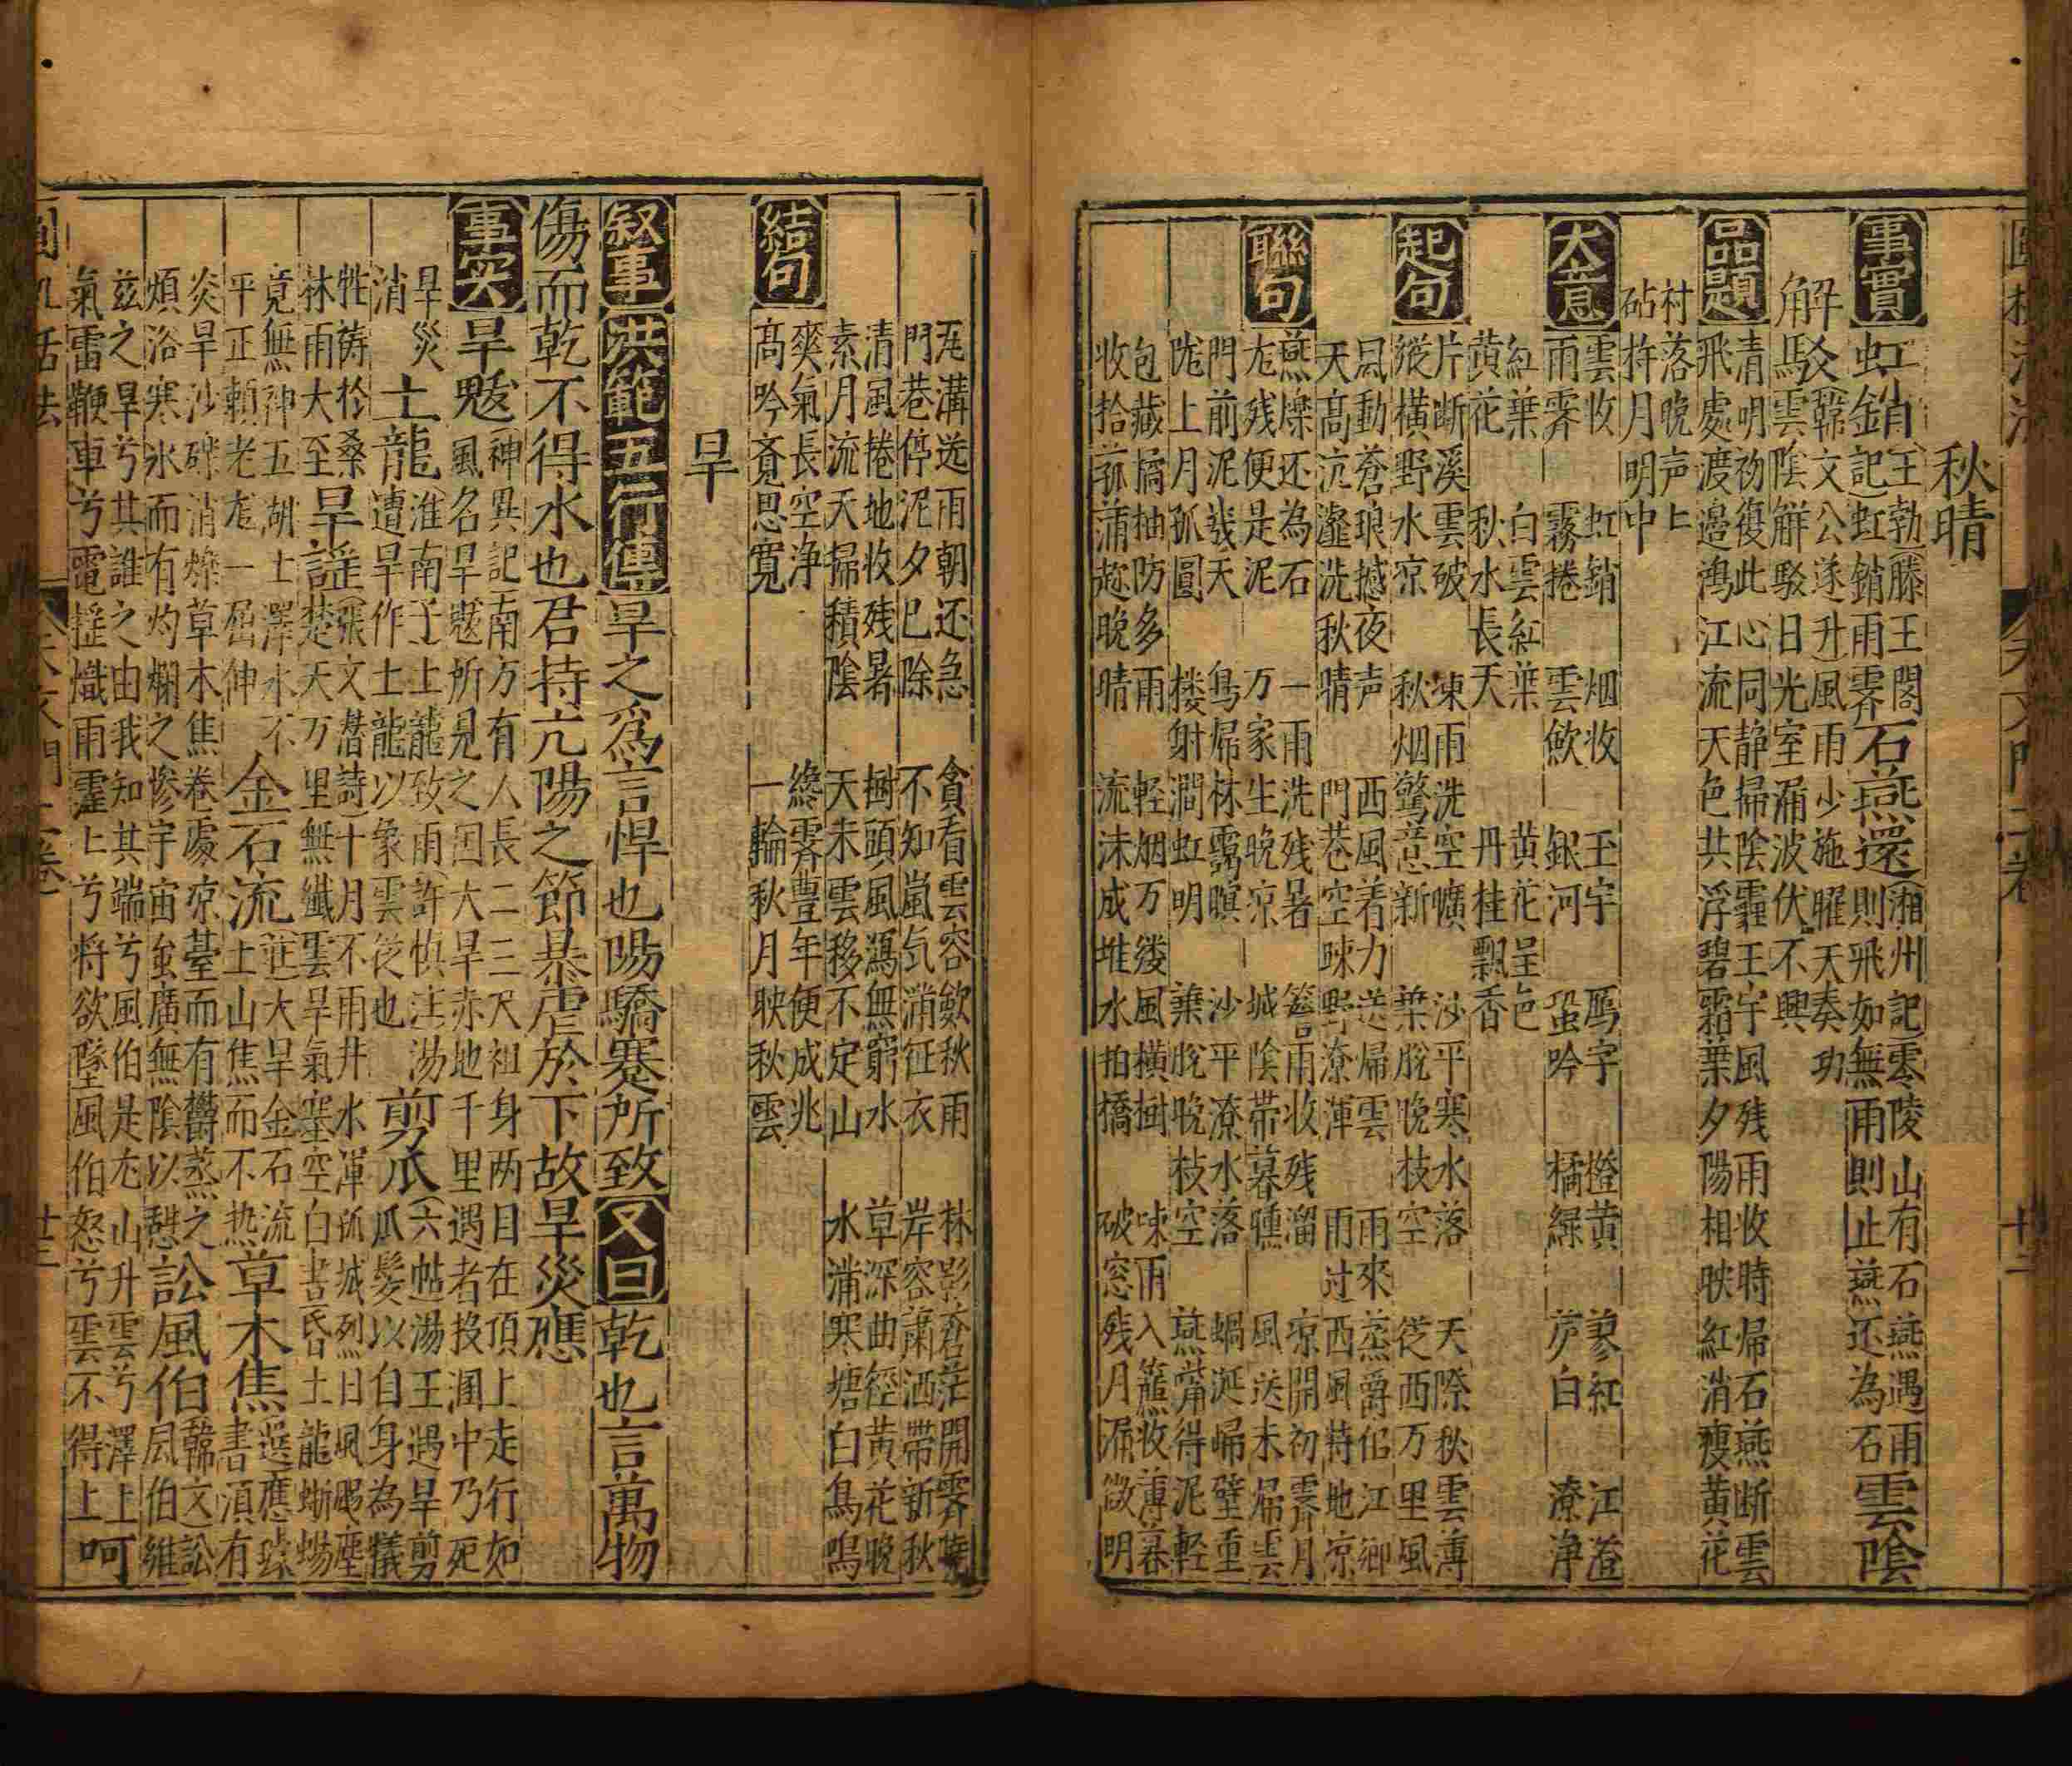 秋晴
事實
虹銷(王勃滕王閣記)虹銷雨霽 石燕還(湘州記)零陵山有石燕遇雨則飛如無雨則止燕还為石 雲陰
解駁(韓文公遂升)風雨少施曜天奏功雲陰解駁日光室漏波伏不興
品題
清明初復此心同静掃陰霾玉宇風残雨收時帰石燕断雲
飛處渡邉鴻江流天色共浮碧霜葉夕陽相映紅消瘦黄花
村落晚声上
砧拧月明中
大意
雲收 虹銷 烟收 玉宇 鴈字 橙黄 蓼红 江澄
雨霽 霧捲 雲斂 銀河 蛩吟 橘緑 芦白 潦净
红葉 白雲红葉 黄花呈色
黄花 秋水長天 丹桂飄香
起句
片断溪雲破 凍雨洗空曠 沙平寒水落 天際秋雲薄
縱横野水凉 秋烟驚意新 葉脱晚枝空 従西万里風
風動蒼琅撼夜声 西風着力送帰雲 雨來蒸爵佋江鄉
天高沆瀣洗秋晴 門巷空疎野潦渾 雨过西風特地凉
聯句
燕爍还為石 一雨洗残暑 簷雨收残溜 凉開初霽月
尨残便是泥 万家生晚凉 城陰帶暮曛 風送未帰雲
門前泥幾天 鳥帰林靄暝 沙平潦水落 蝸涎帰壁重
陇上月孤圓 楼射澗虹明 葉脫晚枝空 燕觜得泥輕
包藏橘柚防多雨 輕烟万縷風横樹 疎雨入簾收薄暮
收拾菰蒲趂晚晴 流沫成堆水拍橋 破窓残月漏微明
瓦溝送雨朝还急 貪看雲容歛秋雨 林影蒼茫開霽曉
門巷停泥夕已除 不知嵐气消征衣 岸容蕭洒帶新秋
清風捲地收残暑 樹頭風瀉無窮水 草深曲徑黄花晚
素月流天掃積陰 天未雲移不定山 水滿寒塘白鳥鳴
結句
爽氣長空浄 纔霽豊年便成兆
高吟育思寬 一輪秋月映秋雲
旱
叙事
洪範五行傳 旱之為言悍也陽驕蹇所致 又曰 乾也言萬物
傷而乾不得水也君持亢陽之節暴虐於下故旱災應
事実
旱魃 神異記南方有人長二三尺祖身两目在頂上走行如風名旱魃所見之国大旱赤地千里遇者投溷中乃死
旱災消 土龍 淮南子土龍致雨(許慎注)湯遭旱作土龍以象雲従也 剪爪(六帖)湯王遇旱剪爪髮以自身為犧
牲祷於桑林雨大至 旱謡(張文潜詩)十月不雨井水渾孤城烈日風飏塵楚天万里無纖雲旱氣塞空白書昏土龍蜥蜴
竟無神五胡土澤水不平正賴老尨一屈伸 金石流(莊)大旱金石流土山焦而不热 草木焦 選應璩書湏有
炎旱沙礫消爍草木焦卷處凉臺而有欝蒸之煩浴寒水而有灼爛之惨宇宙虽廣無陰以憇 訟風伯 韓文訟風伯維
兹之旱兮其誰之由我知其端兮風伯是尤山升雲兮澤上
氣雷鞭車兮電摇幟雨霻上兮將欲墜風伯怒兮雲不得上 呵